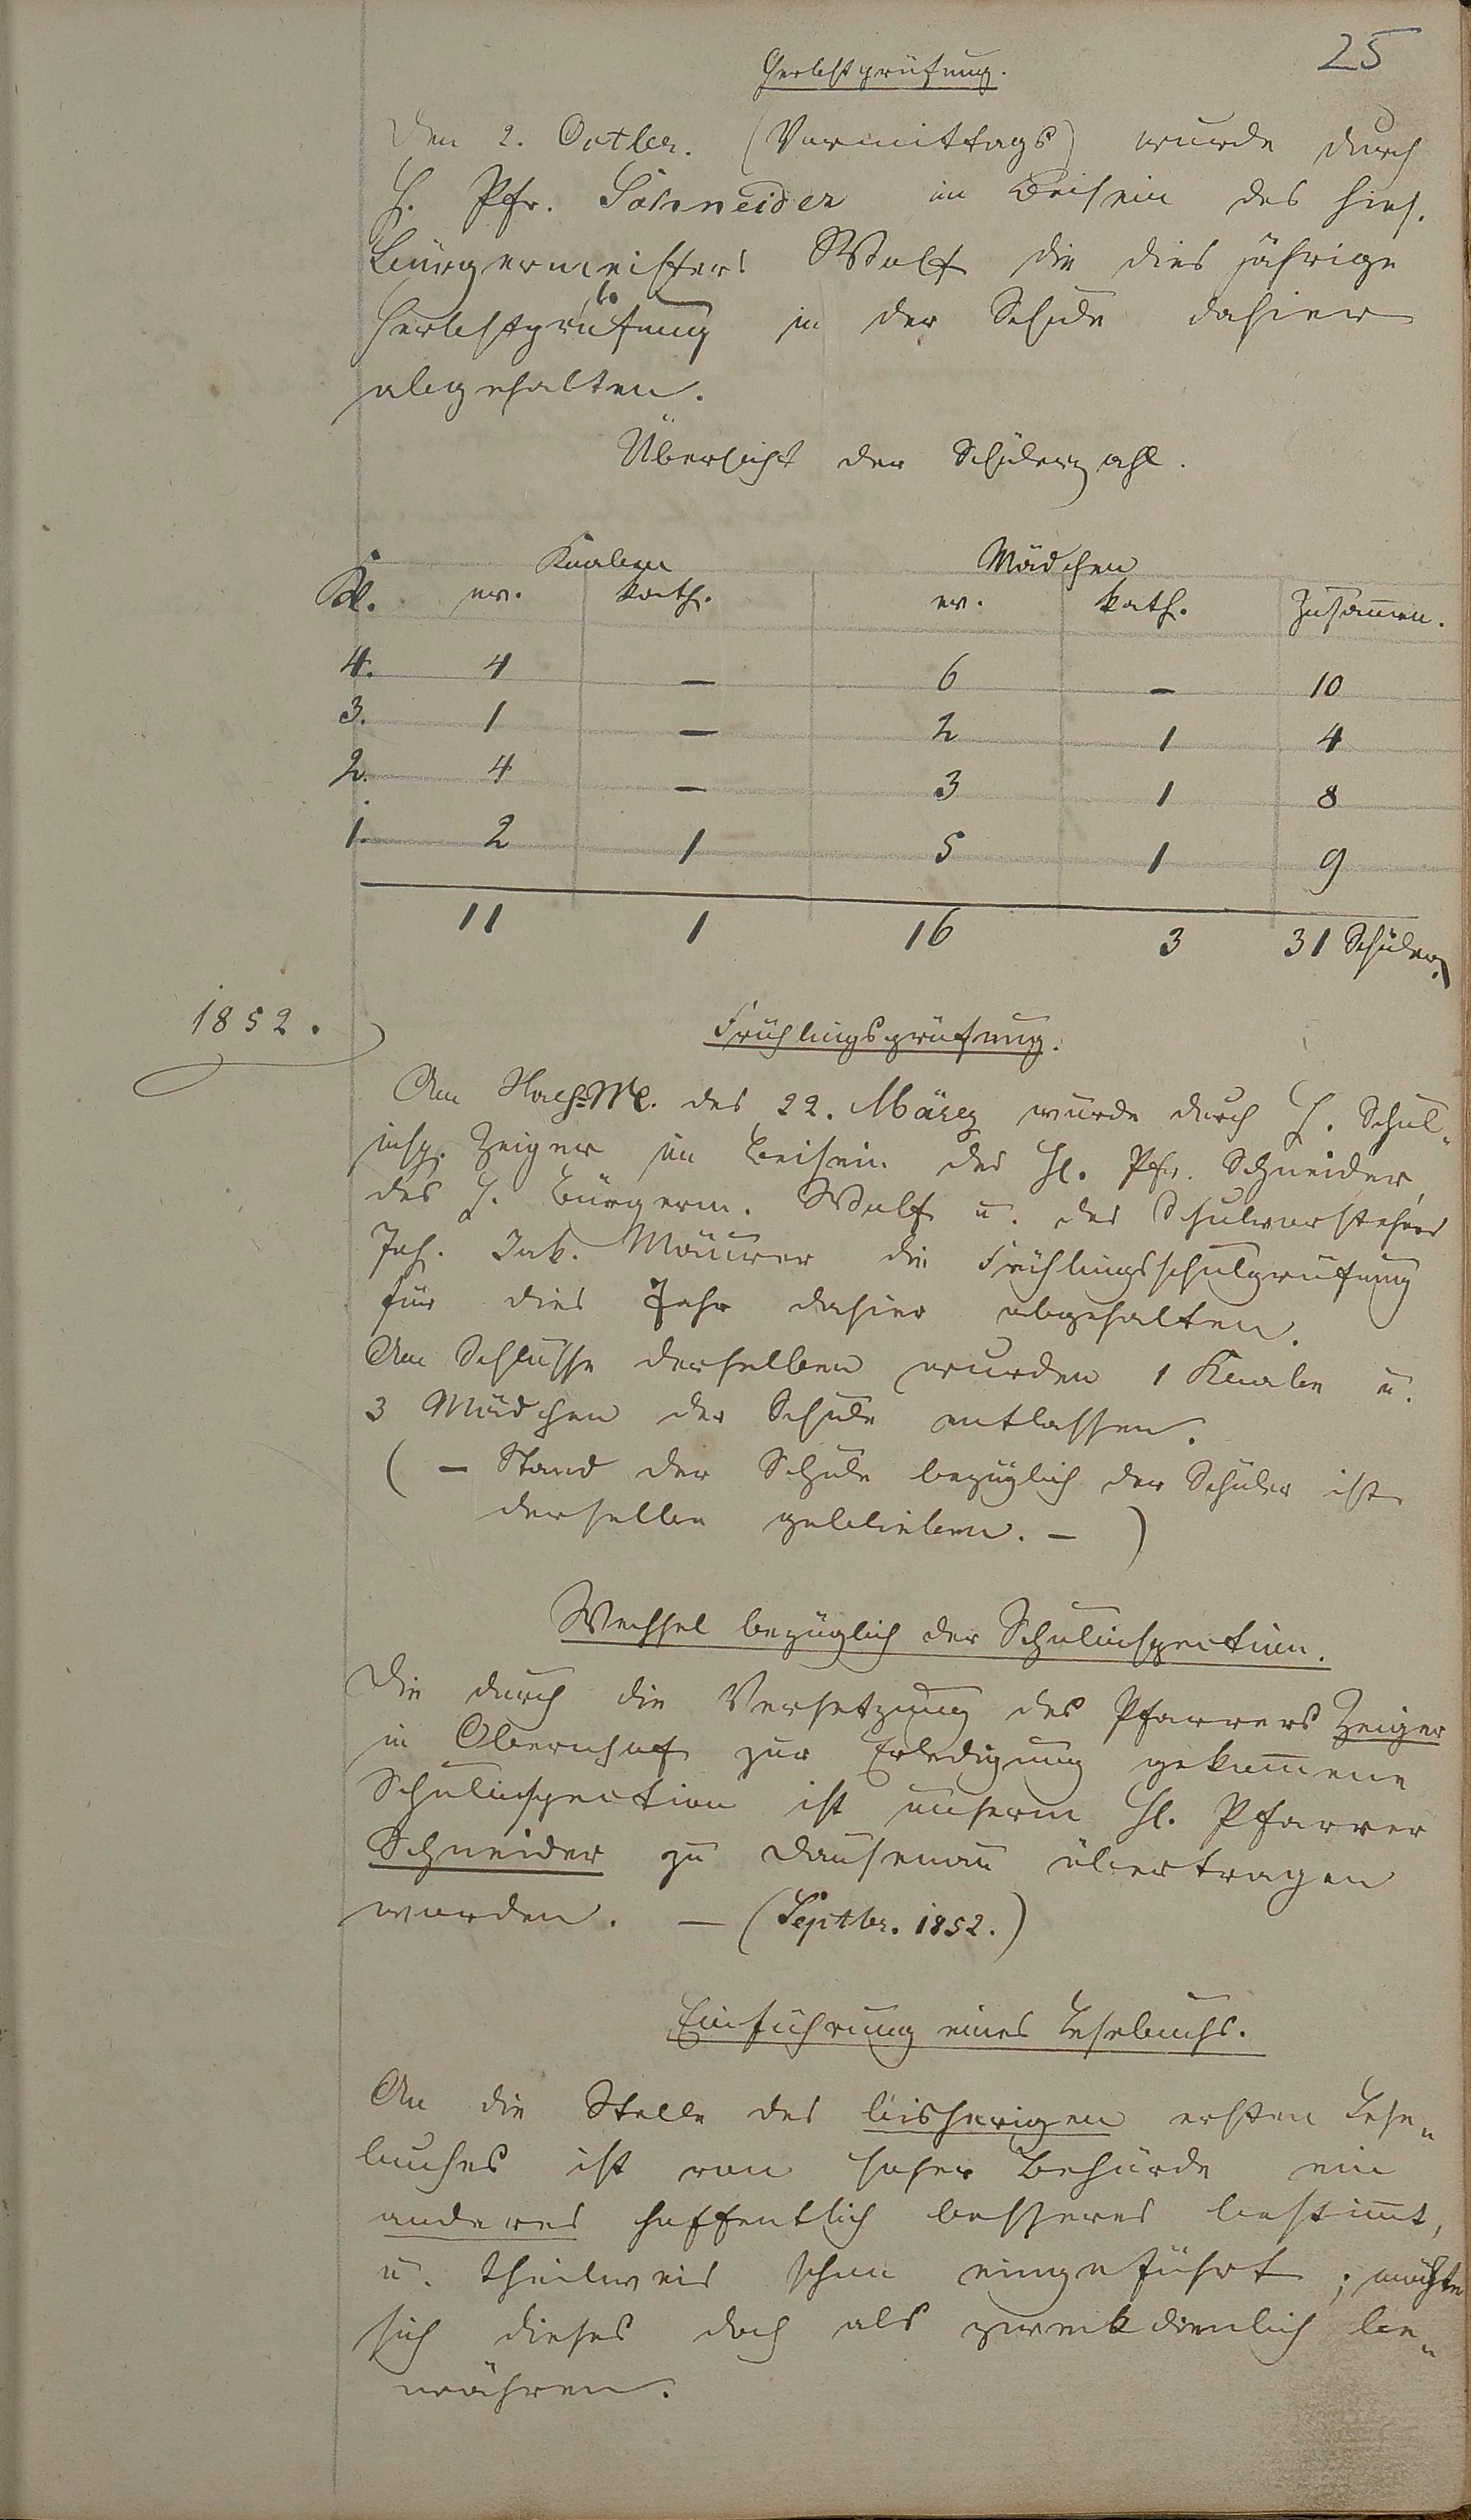 25
Herbstprüfung.
Den 2. Octbr. (Vormittags) wurde durch
H. Pfr. Schneider im Beisein des hies.
Bürgermeisters Wolf die dies jährige
Herbstprüfung in der Schule dahier
abgehalten.
Übersicht der Schülerzahl.
Knaben Mädchen
Kl. ev. kath. ev. kath. Zusam̅en.
4. 4 — 6 — 10
3. 1 — 2 1 4
2. 4 — 3 1 8
1. 2 1 5 1 9
11 1 16 3 31 Schüler.
1852.
Frühlingsprüfung.
Am Nach-M. des 22. März wurde durch H. Schul-
insp. Zeiger im Beisein des H. Pfr. Schneider,
des H. Bürgerm. Wolf u. des Schulvorstehers
Joh. Jak. Maurer die Frühlingsschulprüfung
für dies Jahr dahier abgehalten.
Am Schlusse derselben wurden 1 Knabe u.
3 Mädchen der Schule entlassen.
( — Stand der Schule bezüglich der Schüler ist
derselbe geblieben. — )
Wechsel bezüglich der Schulinspection.
Die durch die Versetzung des Pfarrers Zeiger
in Obernhof zur Erledigung gekom̅ene
Schulinspection ist unserm H. Pfarrer
Schneider zu Dausenau übertragen
worden. — (Septbr. 1852.)
Einführung eines Lesebuchs.
An die Stelle des bisherigen ersten Lese-
buches ist von hoher Behörde ein
anderes hoffentlich besseres bestim̅t,
u. theilweis schon eingeführt; möchte
sich dieses doch als zweckdienlich be-
währen.